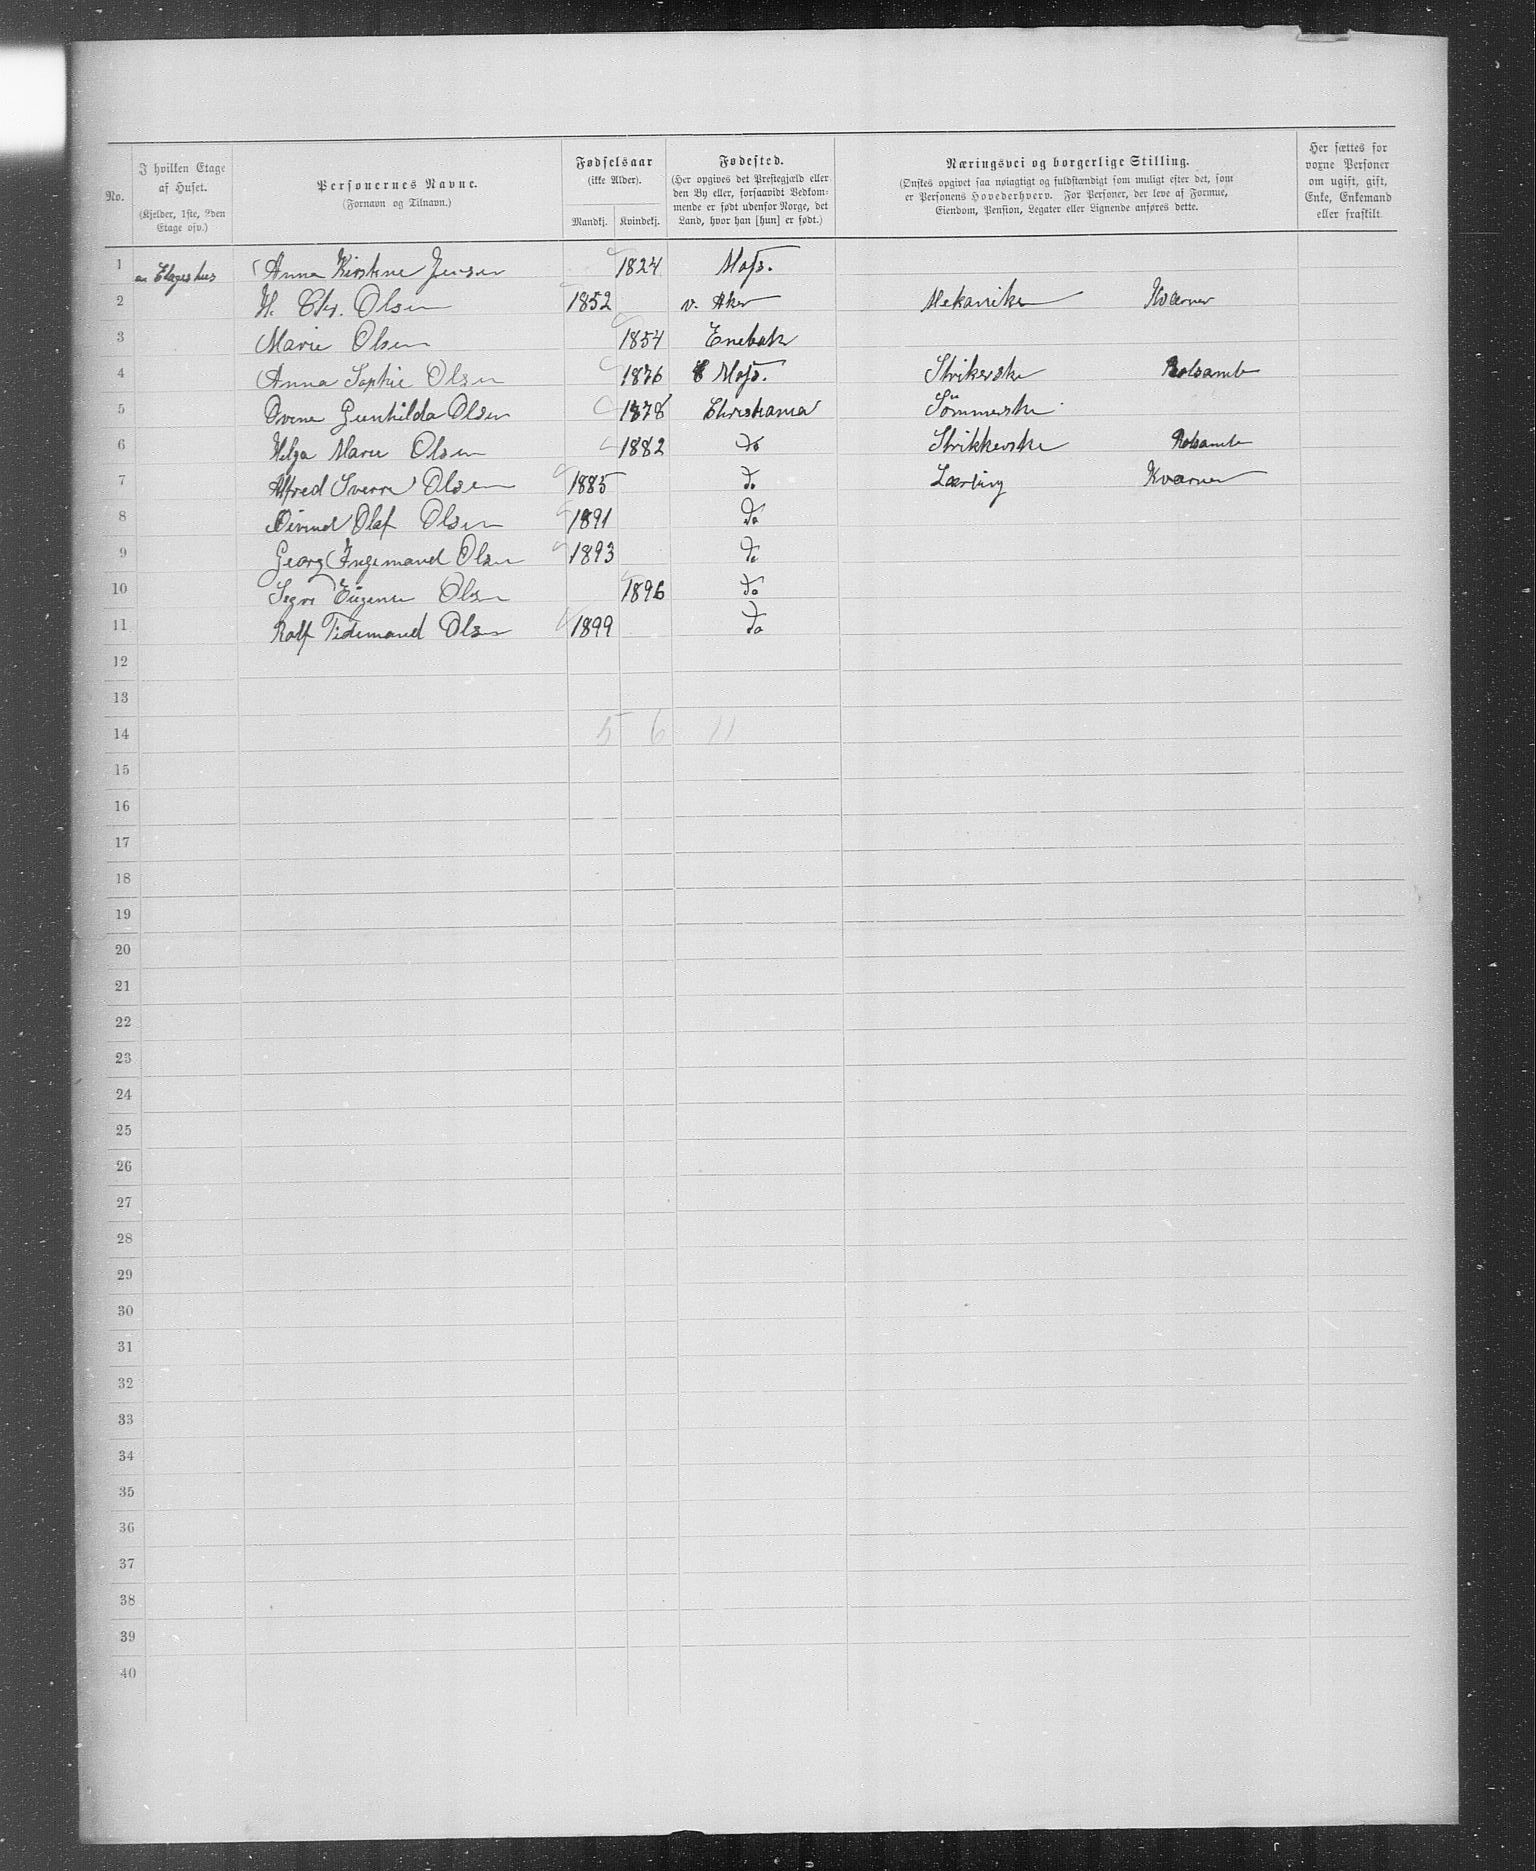 No.
I hvilken Etage af Huset.
(Kjelder, 1ste, 2den Etage osv.)
Personernes Navne.
(Fornavn og Tilnavn.)
Fødselsaar
(ikke Alder).
Mandkj. Kvindekj.
Fødested.
(Her opgives det Prestegjæld eller den By eller, forsaavidt Vedkommende er født udenfor Norge, det Land, hvor han [hun] er født.)
Næringsvei og borgerlige Stilling.
(Ønskes opgivet saa nøiagtigt og fuldstændigt som muligt efter det, som er Personens Hovederhverv. For Personer, der leve af Formue, Eiendom, Pension, Legater eller Lignende anføres dette.
Her sættes for voxne Personer om ugift, gift, Enke, Enkemand eller fraskilt.
1 Etageshus Anna Kirstine Jensen 1824 Moss.
2 H. Chr. Olsen 1852 v. Aker Mekaniker Kværner
3 Marie Olsen 1854 Enebak
4 Anna Sophie Olsen 1876 Moss. Strikerske
5 Gunhilda Olsen 1878 Christiania Sömmerske
6 Helga Marie Olsen 1882 do Strikkerske
7 Alfred Sverre Olsen 1885 do Lærling Kværner
8 Øivind Olaf Olsen 1891 do
9 Georg Ingemand Olsen 1893 do
10 Eugenie Olsen 1896 do
11 Rolf Tidemand Olsen 1899 do
12
13
14 5 6 11
15
16
17
18
19
20
21
22
23
24
25
26
27
28
29
30
31
32
33
34
35
36
37
38
39
40